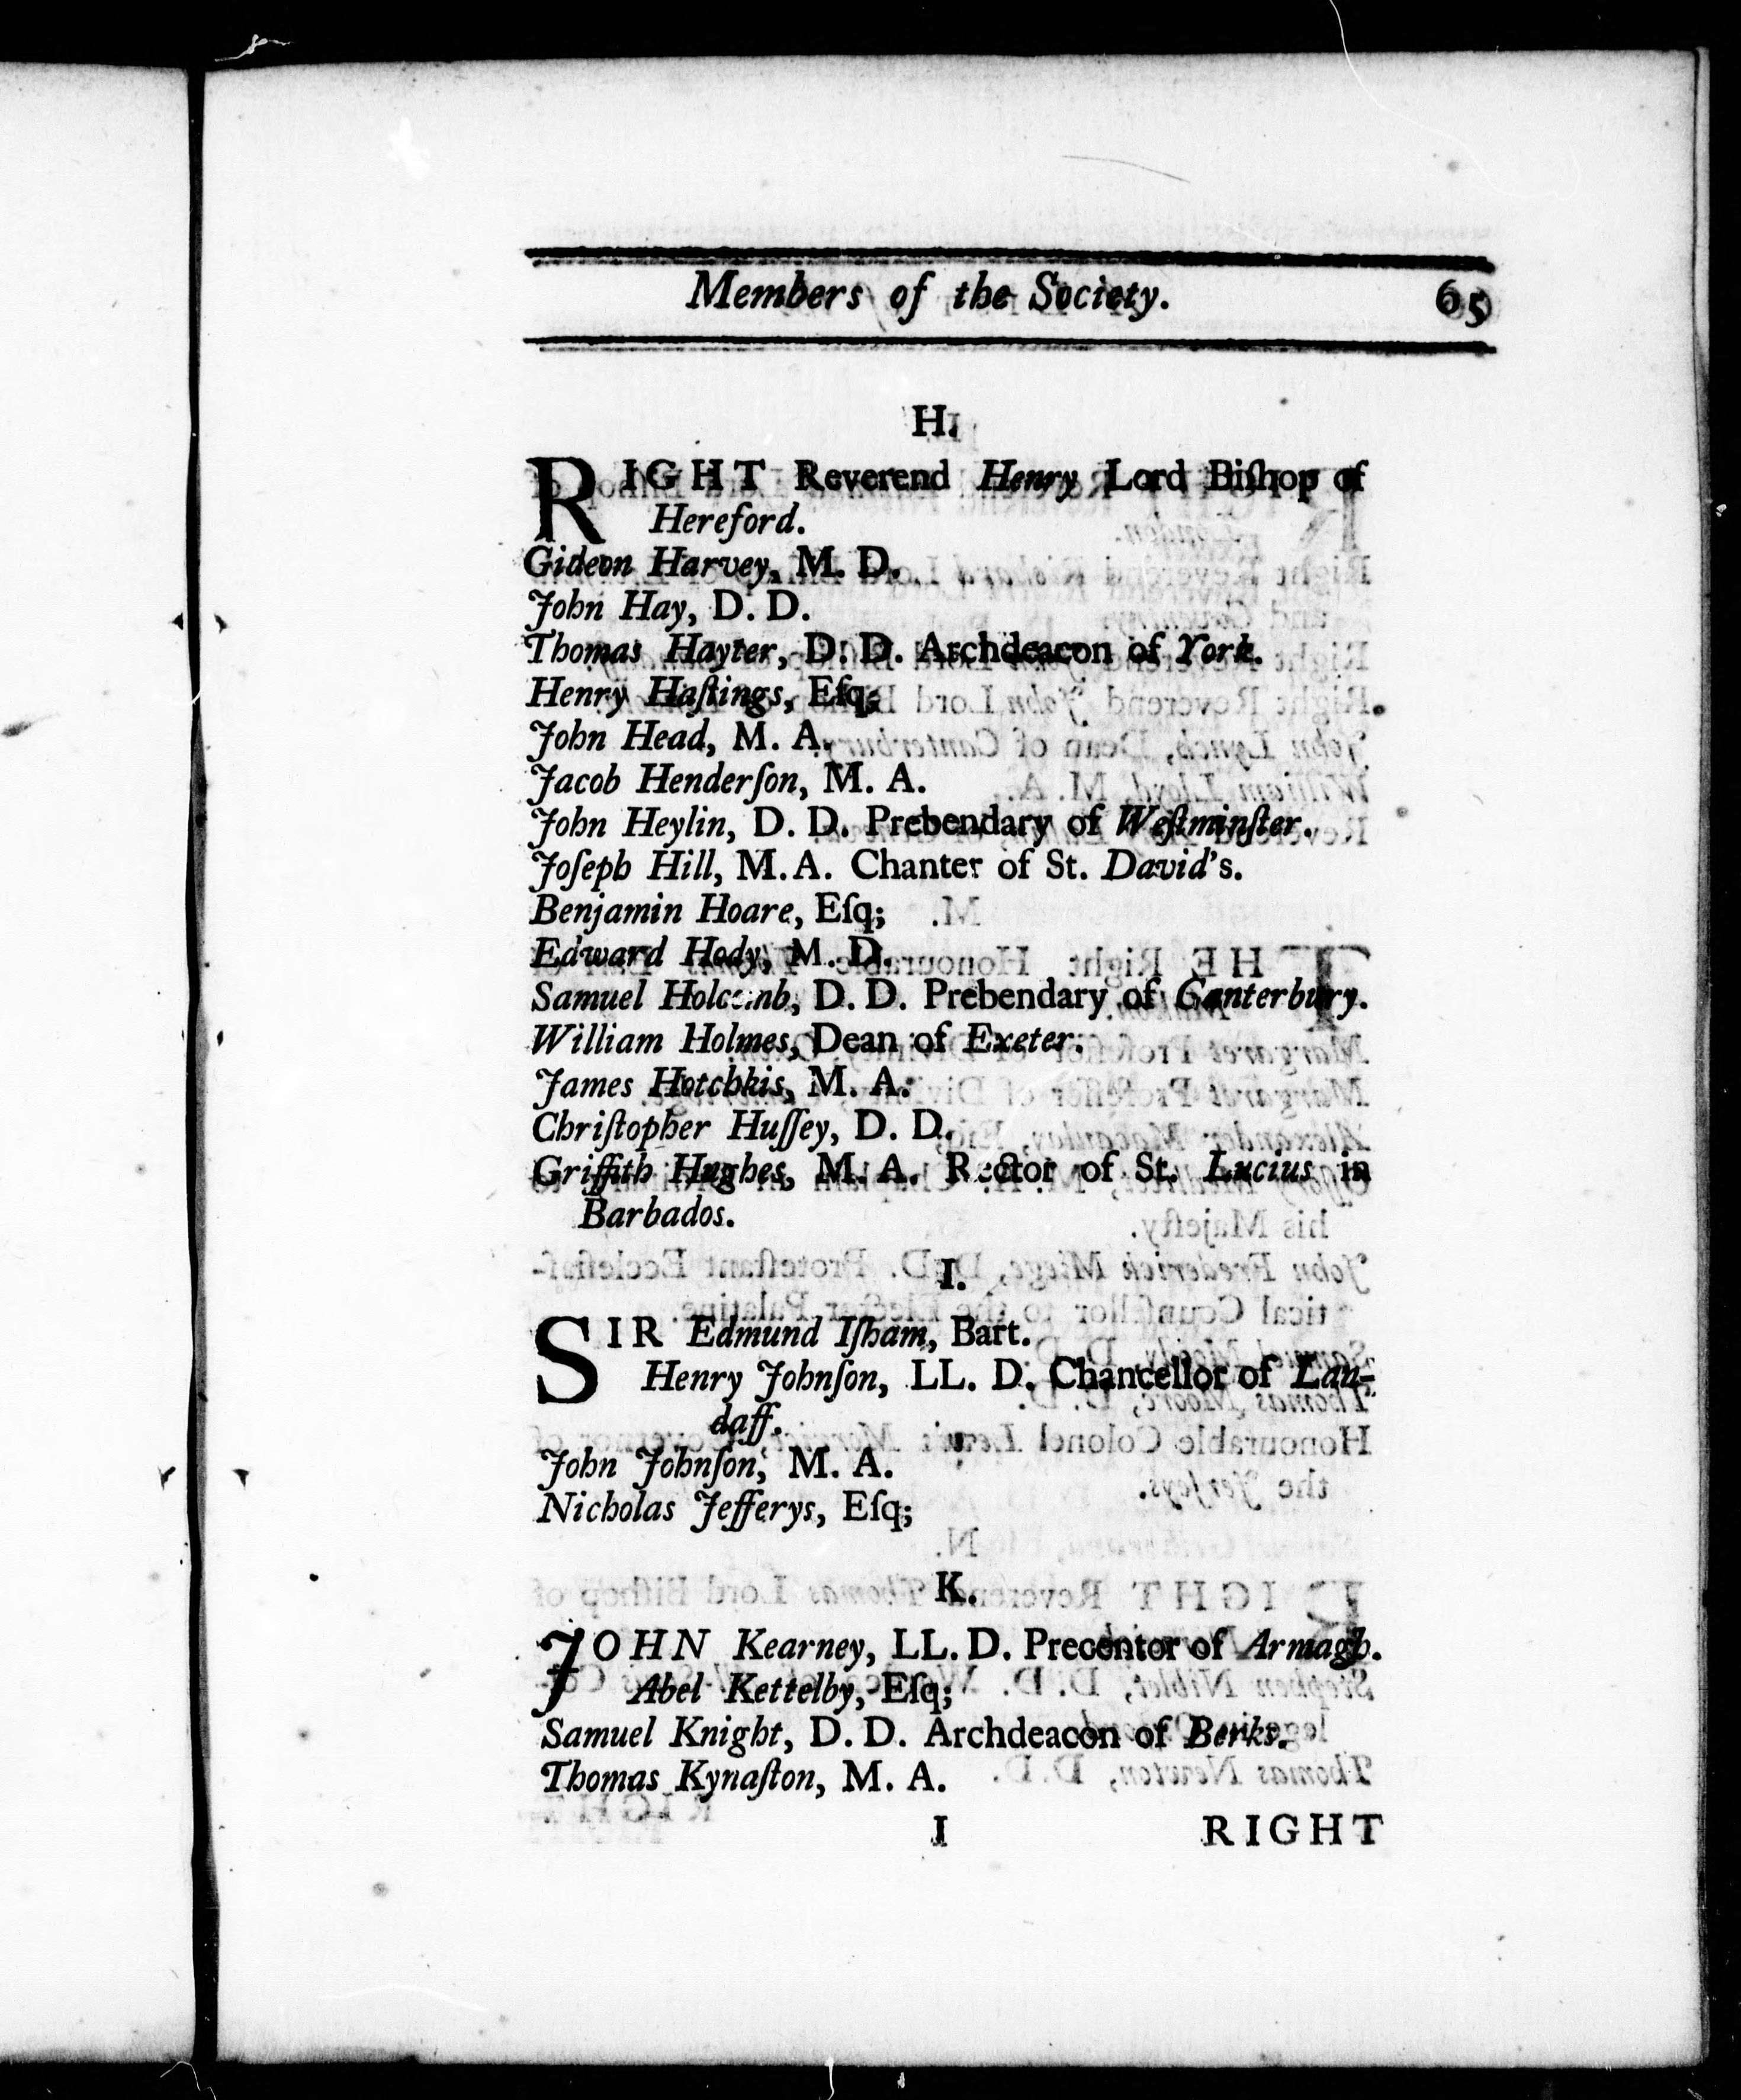 Members of the Society. 65
H.
RIGHT Reverend Henry Lord Biſhop of
Hereford.
Gideon Harvey, M. D.
John Hay, D. D.
Thomas Hayter, D. D. Archdeacon of York.
Henry Haſtings, Eſq;
John Head, M. A.
Jacob Henderſon, M. A.
John Heylin, D. D. Prebendary of Weſtminſter.
Joſeph Hill, M. A. Chanter of St. David's.
Benjamin Hoare, Eſq;
Edward Hody, M. D.
Samuel Holcomb, D. D. Prebendary of Canterbury.
William Holmes, Dean of Exeter.
James Hotchkis, M. A.
Chriſtopher Huſſey, D. D.
Griffith Hughes, M. A. Rector of St. Lucius in
Barbados.
I.
SIR Edmund Iſham, Bart.
Henry Johnſon, LL. D. Chancellor of Lan-
daff.
John Johnſon, M. A.
Nicholas Jefferys, Eſq;
K.
JOHN Kearney, LL. D. Precentor of Armagh.
Abel Kettelby, Eſq;
Samuel Knight, D. D. Archdeacon of Berks.
Thomas Kynaſton, M. A.
I RIGHT